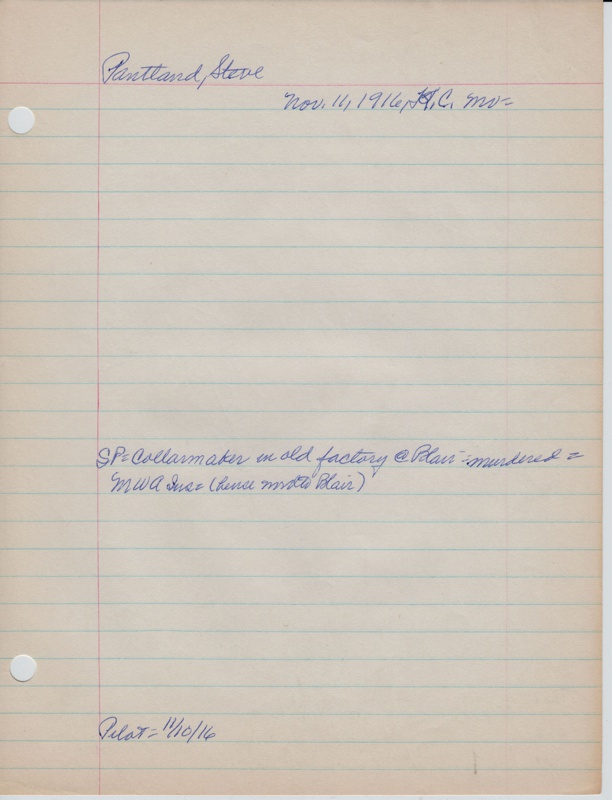 Pantland, Steve
Nov. 11, 1916, K.C. Mo=
SP= Collarmaker in old factory @ Blair = murdered =
MWA Ins= (hence Blair)
Pilot= 11/10/16